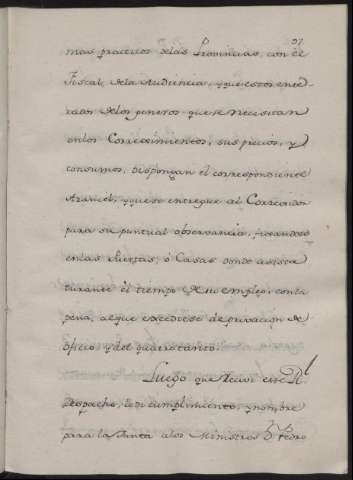 97
mas practicos delas Provincias, con el
Fiscal dela Audiencia, y que estos ente-
rados de los generos que se necesitan
en los Corregimientos, sus precios, y
consumos, dispongan el correspondiente
Arancel, que se entregue al Corregidor
para su puntual observancia, fixandose
en las Puertas, ó Casas donde asista
durante el tiempo de su empleo, con la
pena, al que excediese de privacion de
oficio, y del quatro tanto.
Luego que llevó este Rl.
Despacho, ledi cumplimiento, y nombre
para la Junta alos Ministros Dn. Pedro